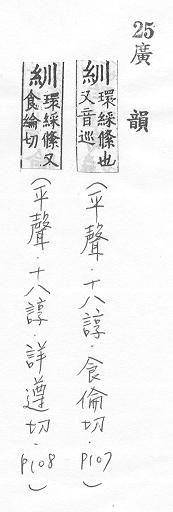 25廣韻
紃環綵絛也又音巡(平聲.十八諄.食倫切.P107)
紃環綵絛又食綸切(平聲.十八諄.詳遵切.P108)